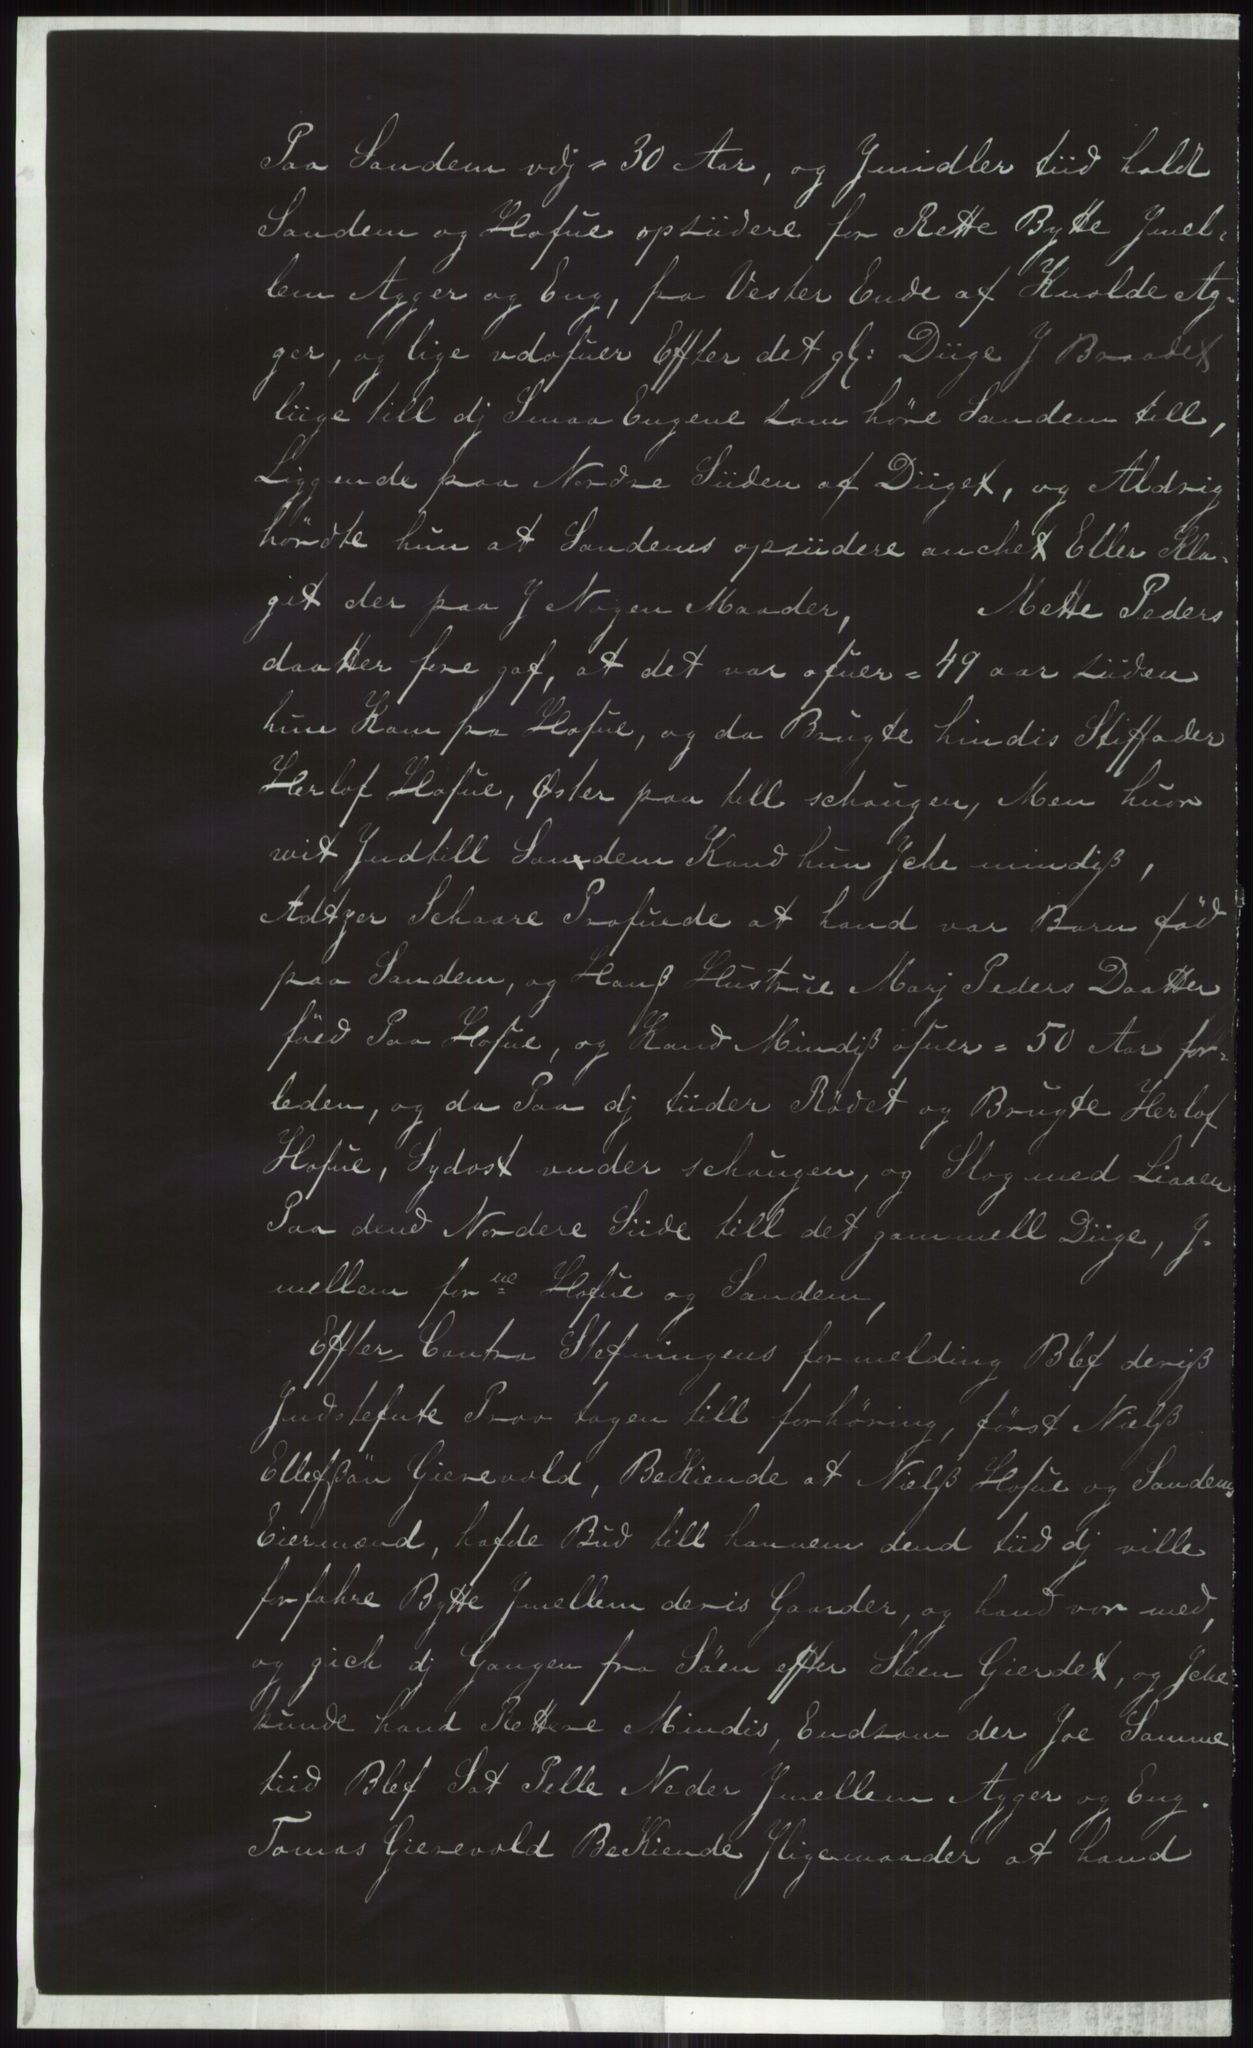 Paa Sandem vdj = 30 Aar, og Jmidler tiid holdt
Sandem og Hofue opsiidere for Rette Bytte Jmel-
lem Agger og Eng, fra Vester Ende af Knolde Ag-
ger, og lige vdofuer Effter det gl: Diige J Braadet
liige till dj Smaa Engene som höre Sandem till,
Liggende paa Nordre Siiden af Diiget, og Aldrig
hördte hun at Sandems opsiidere anchet Eller Kla-
git der paa J Nogen Maader, Mette Peders
daatter fore gaf, at det var ofuer = 49 aar siiden
hun Kom fra Hofue, og da Brugte hindis Stiffader
Herlof Hofue, Øster paa till schougen, Men huor
wit Jndtill Sandem Kand hun Jche mindiß,
Adtzer Schaare Prafuede at hand var Barn föd
paa Sandem, og Hanß Hustrue Marj Peders Daatter
föed Paa Hofue, og Kand Mindiß ofuer = 50 Aar for-
leden, og da Paa dj tiider Rödet og Brugte Herlof
Hofue, Sydost vnder schougen, og Slog med Liaaen
Paa dend Nordere Siide till det gammell Diige, J-
mellem forne Hofue og Sandem,
Effter Contra Stefningens formelding Blef deriß
Jndstefnte Prov tagen till forhöring, först Nielß
Ellefßön Gierevold, BeKiende at Nielß Hofue og Sandems
Eiermænd, hafde Bud till hannem dend tiid dj ville
forfahre Bytte Jmellem deris Gaarder, og hand var med,
og gich dj Gangen fra Söen effter Steen Gierdet, og Jche
kunde hand Rettere Mindis, Endsom der Joe Samme
tiid Blef Sat Pelle Neder Jmellem Agger og Eng.
Tomas Gierevold BeKiende Jligemaader at hand